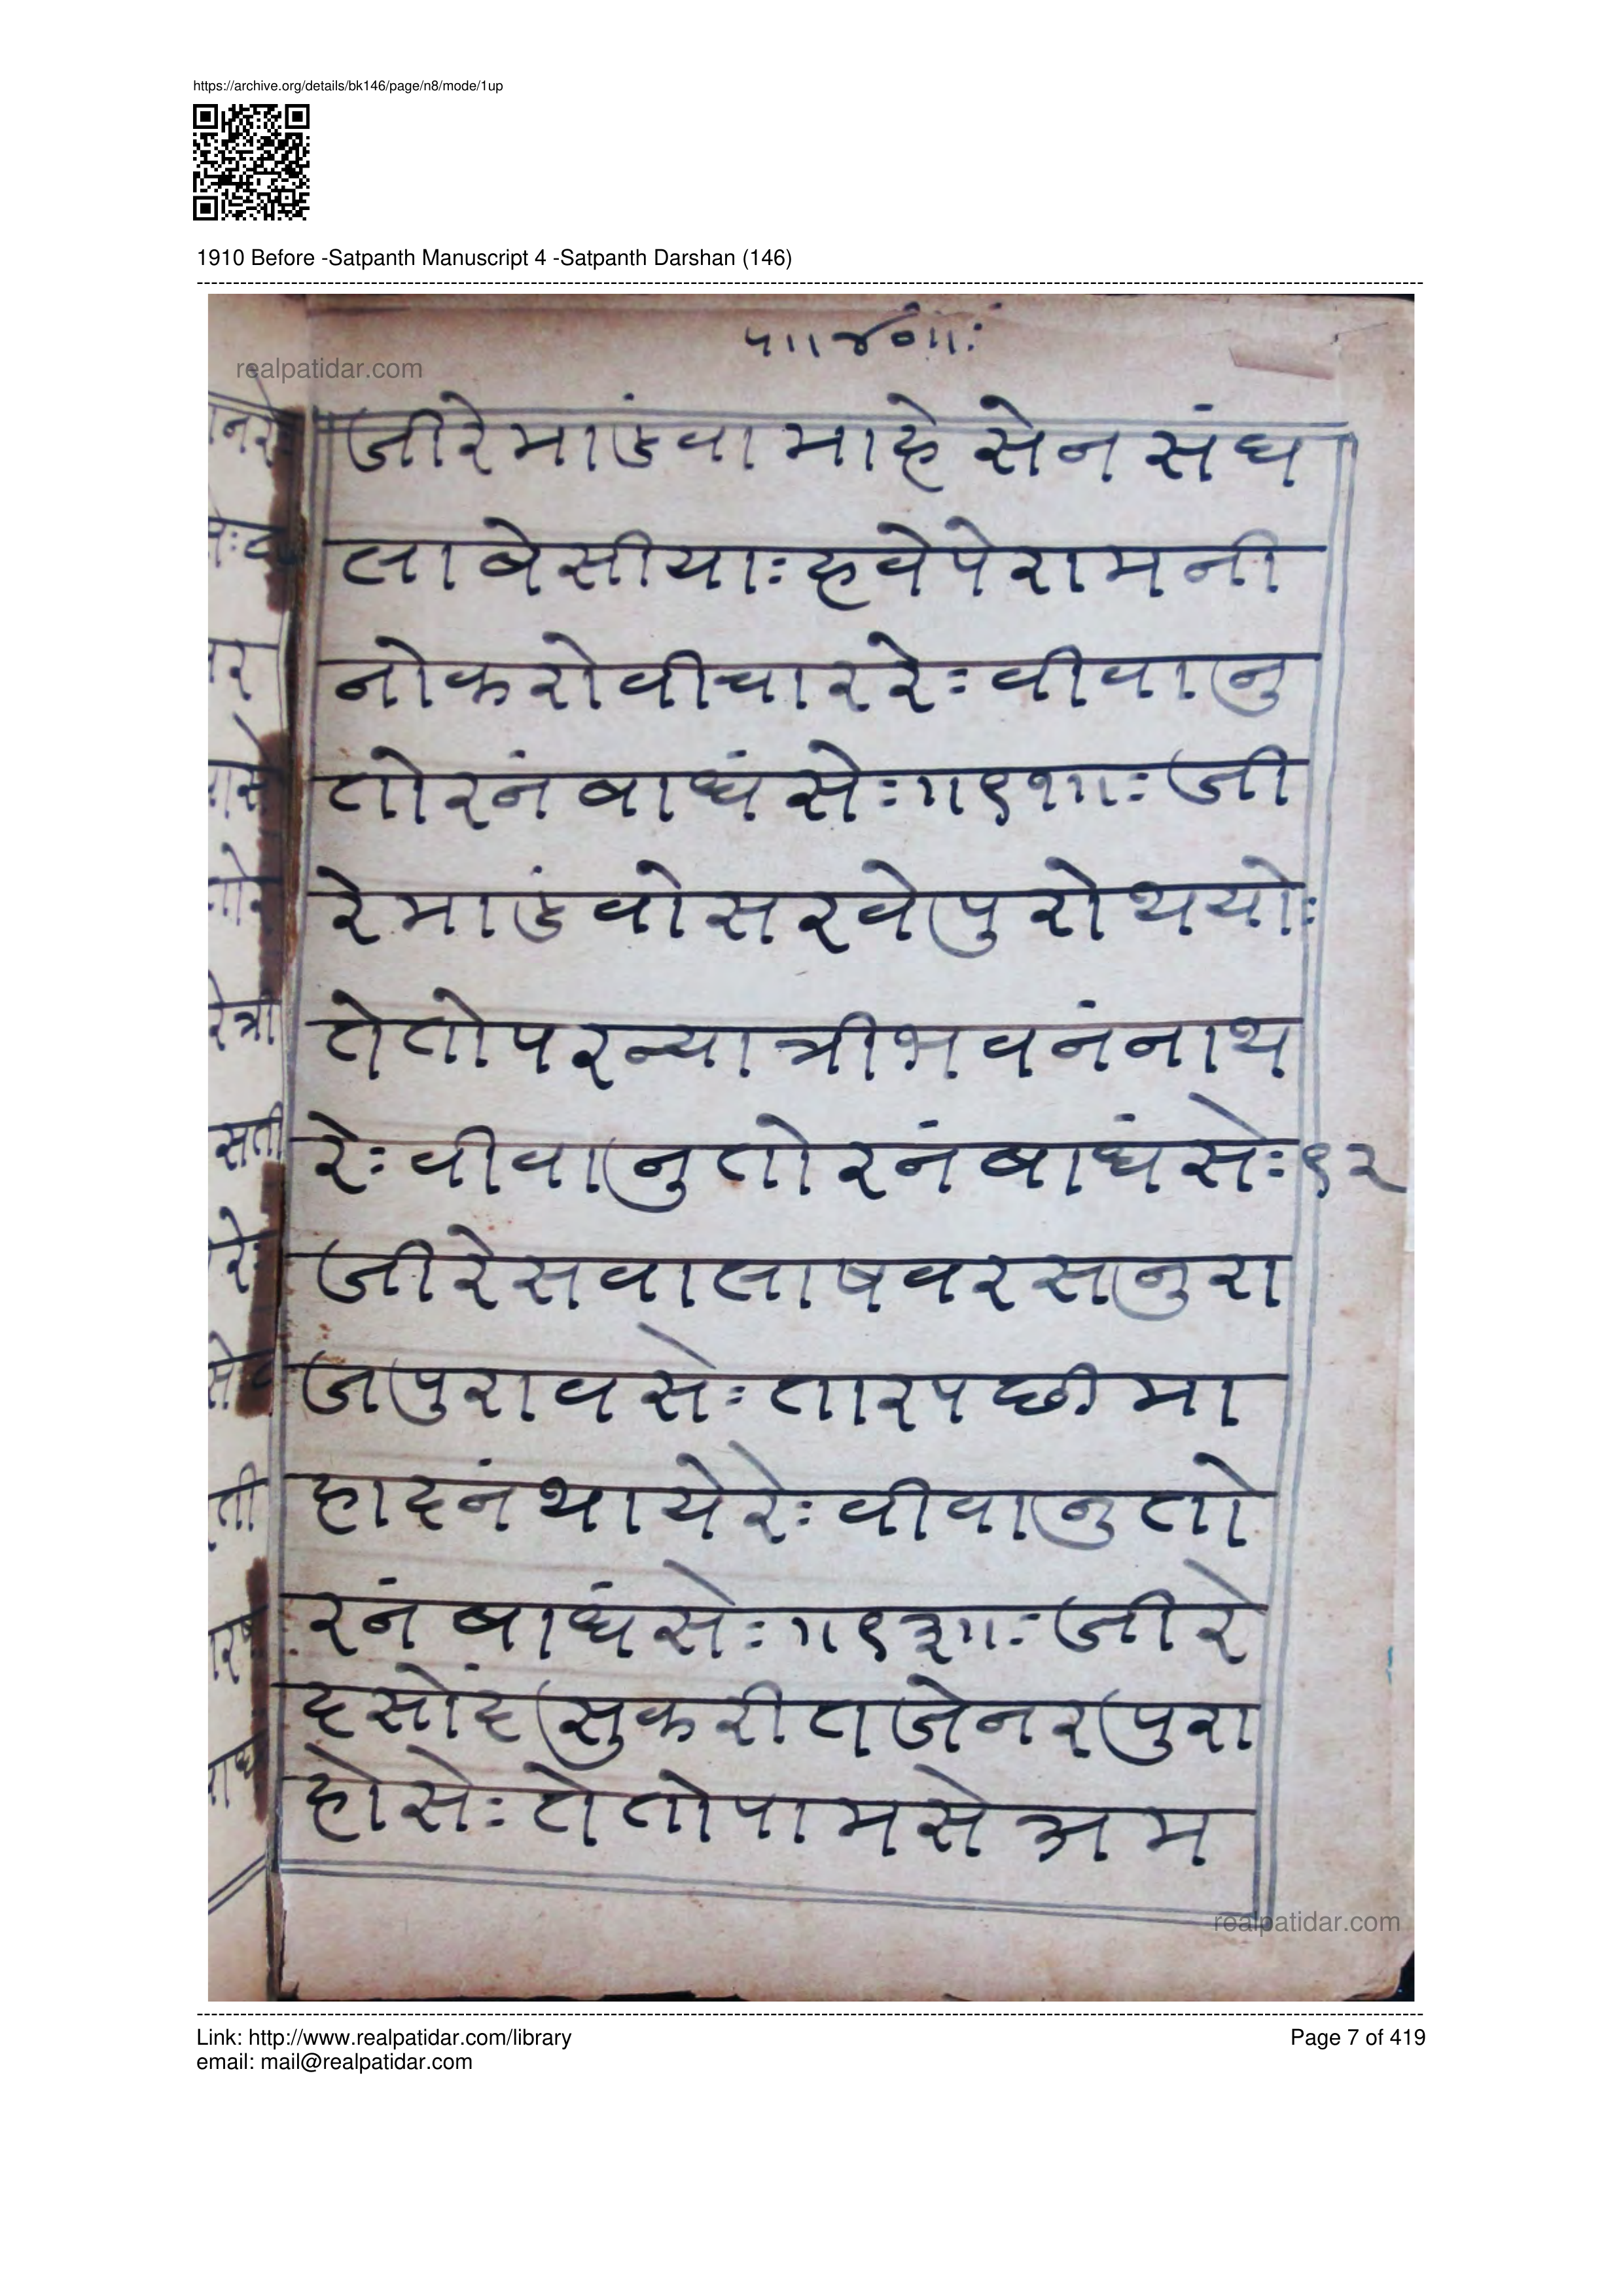 https://archive.org/details/bk146/page/n8/mode/1up
1910 Before -Satpanth Manuscript 4 -Satpanth Darshan (146)
realpatidar.com
जीरेमांडवा माहे सेन संघ
ला बेसीयाः हवेपेरामनी
नोकरोवीचार रेः वीवानु
तोरनं बाधंसेः॥९१॥ः जी
रे मांडवोसरवेपुरोथयोः
तेतोपरन्यात्रीभवनंनाथ
रेः वीवानुतोरनंबाधंसेः९२
जीरेसवालाषवरसनुरा
जपुरावसेः तारपछी मा
हादनंथायेरेः वीवानुतो
रनं बाधंसेः॥९३॥ः जीरे
दसोंदसुकरीतजेनरपुरा
होसेः तेतोपामसे अम
realpatidar.com
Link: http://www.realpatidar.com/library
Page 7 of 419
email: mail@realpatidar.com